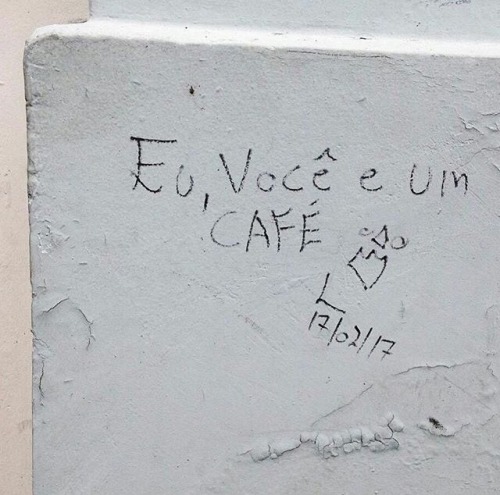 Eu, Você e um
CAFÉ
L
17/02/17